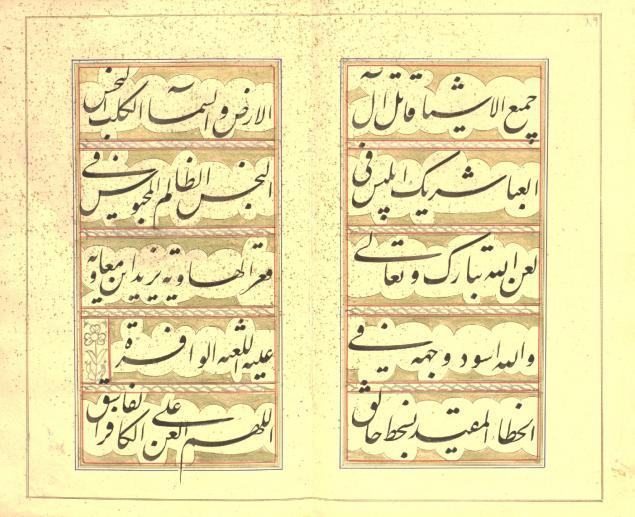 جمیع الاشیاء قاتل آل
العبا شریک ابلیس فی
لعن الله تبارک و تعالی
والله اسود وجهه فی
الخطا المقید بسخط خالق
الارض و السمآ الکلب النجس
النجس الظالم المحبوس فی
قعر الهاویه یزید ابن معاویه
علیه اللعنه الوافرة
اللهم العن علی الکافر الفاسق